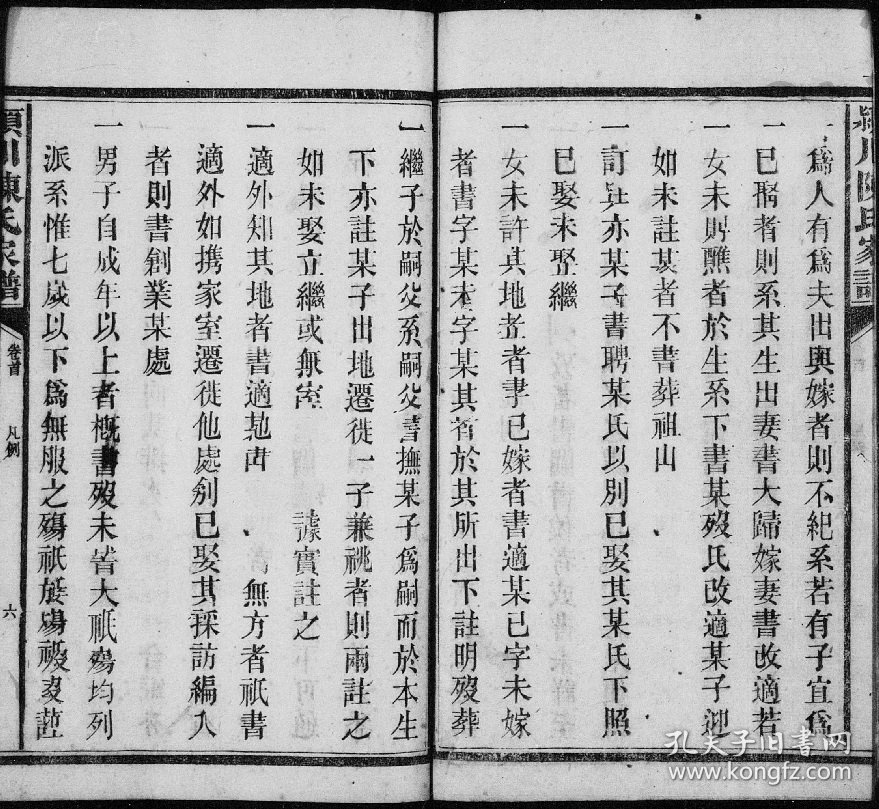 潁川陳氏家譜
一爲人有爲夫出與嫁者則不紀系若有子宜爲
一已醮者則系其生出妻書大歸嫁妻書改適若
一女未醮者於生系下書某歿氏改適某子迎
如未註某者不書葬祖山
一訂 亦某子書聘某氏以別已娶其某氏下照
已娶未娶繼
一女未許其地 者書已嫁者書適某已字未嫁
者書字某未字某其 於其所出下註明歿葬
一繼子於嗣父系嗣父書撫某子爲嗣而於本生
下亦註某子出地遷徙一子兼祧者則兩註之
如未娶立繼或無室 據實註之
一適外知其地者書適某 無方者祇書
適外如携家室遷徙他處別已娶其採訪編入
者則書創業某處
一男子自成年以上者概書歿未 大祇殤均列
派系惟七歲以下爲無服之殤祇 殤
潁川陳氏家譜
卷首
凡例
六
孔夫子旧书网
www.kongfz.com